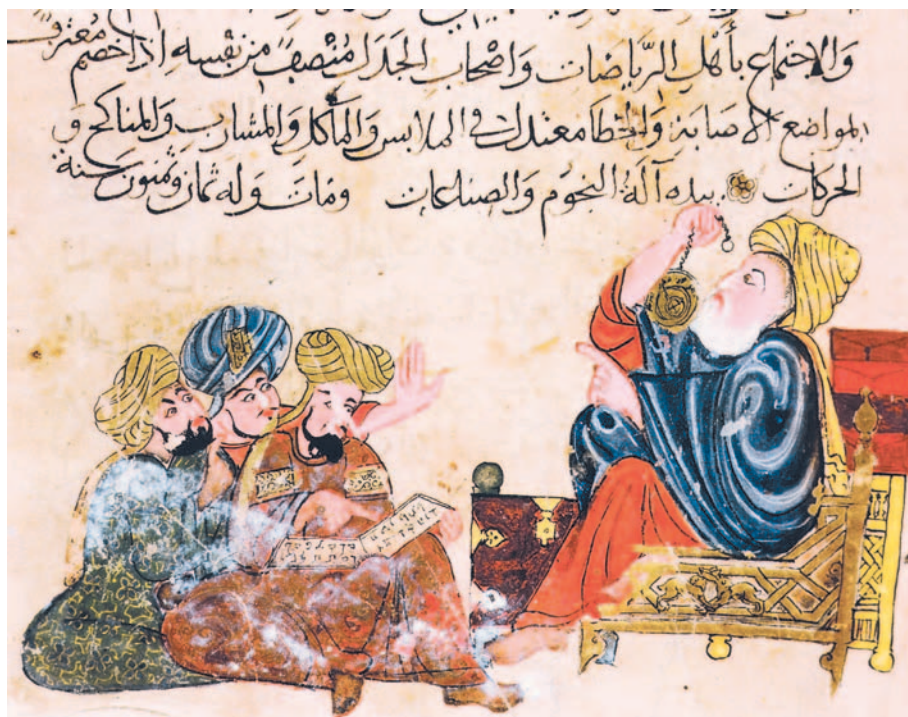 والاجتماع بأهل الرياضات واصحاب الجدل منصف من نفسه اذا خصم معترف
لمواضع الاصابة والخطا معتدل في الملابس والمأكل والمشارب والمناكح و
الحركات بيده آلة النجوم والصناعات ومات وله ثمان وثمنون سنة